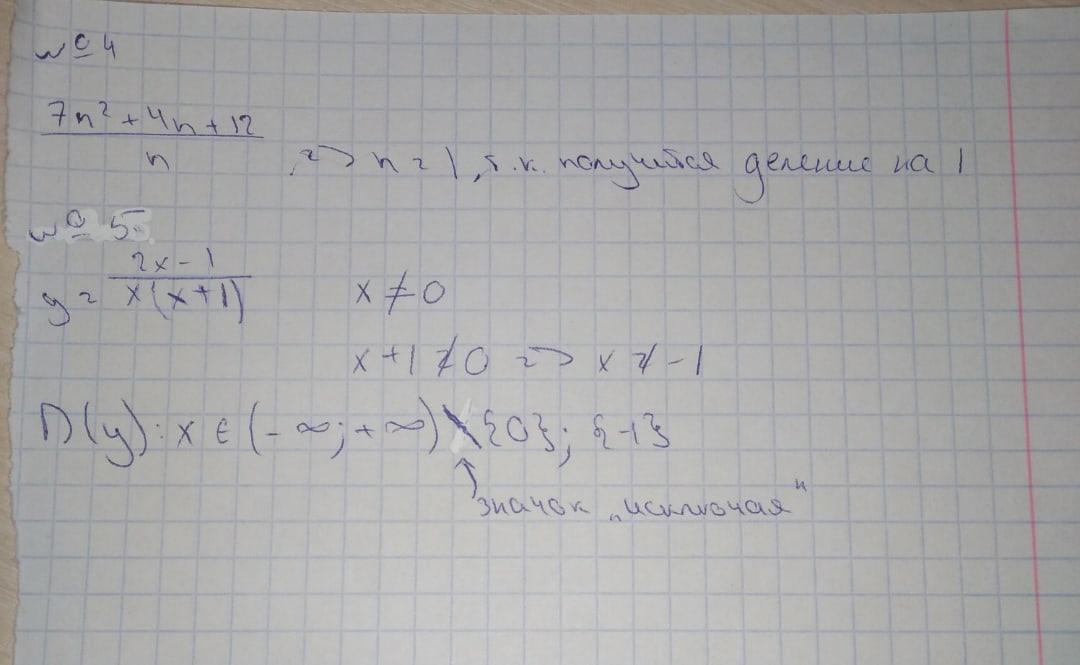 № 4
7n² + 4n + 12
n
, => n = 1, т.к. получится деление на 1
№ 5
2x - 1
y = x(x+1) x ≠ 0
x + 1 ≠ 0 => x ≠ -1
D(y): x ∈ (-∞; +∞) \ {0}; {-1}
значок „исключая"